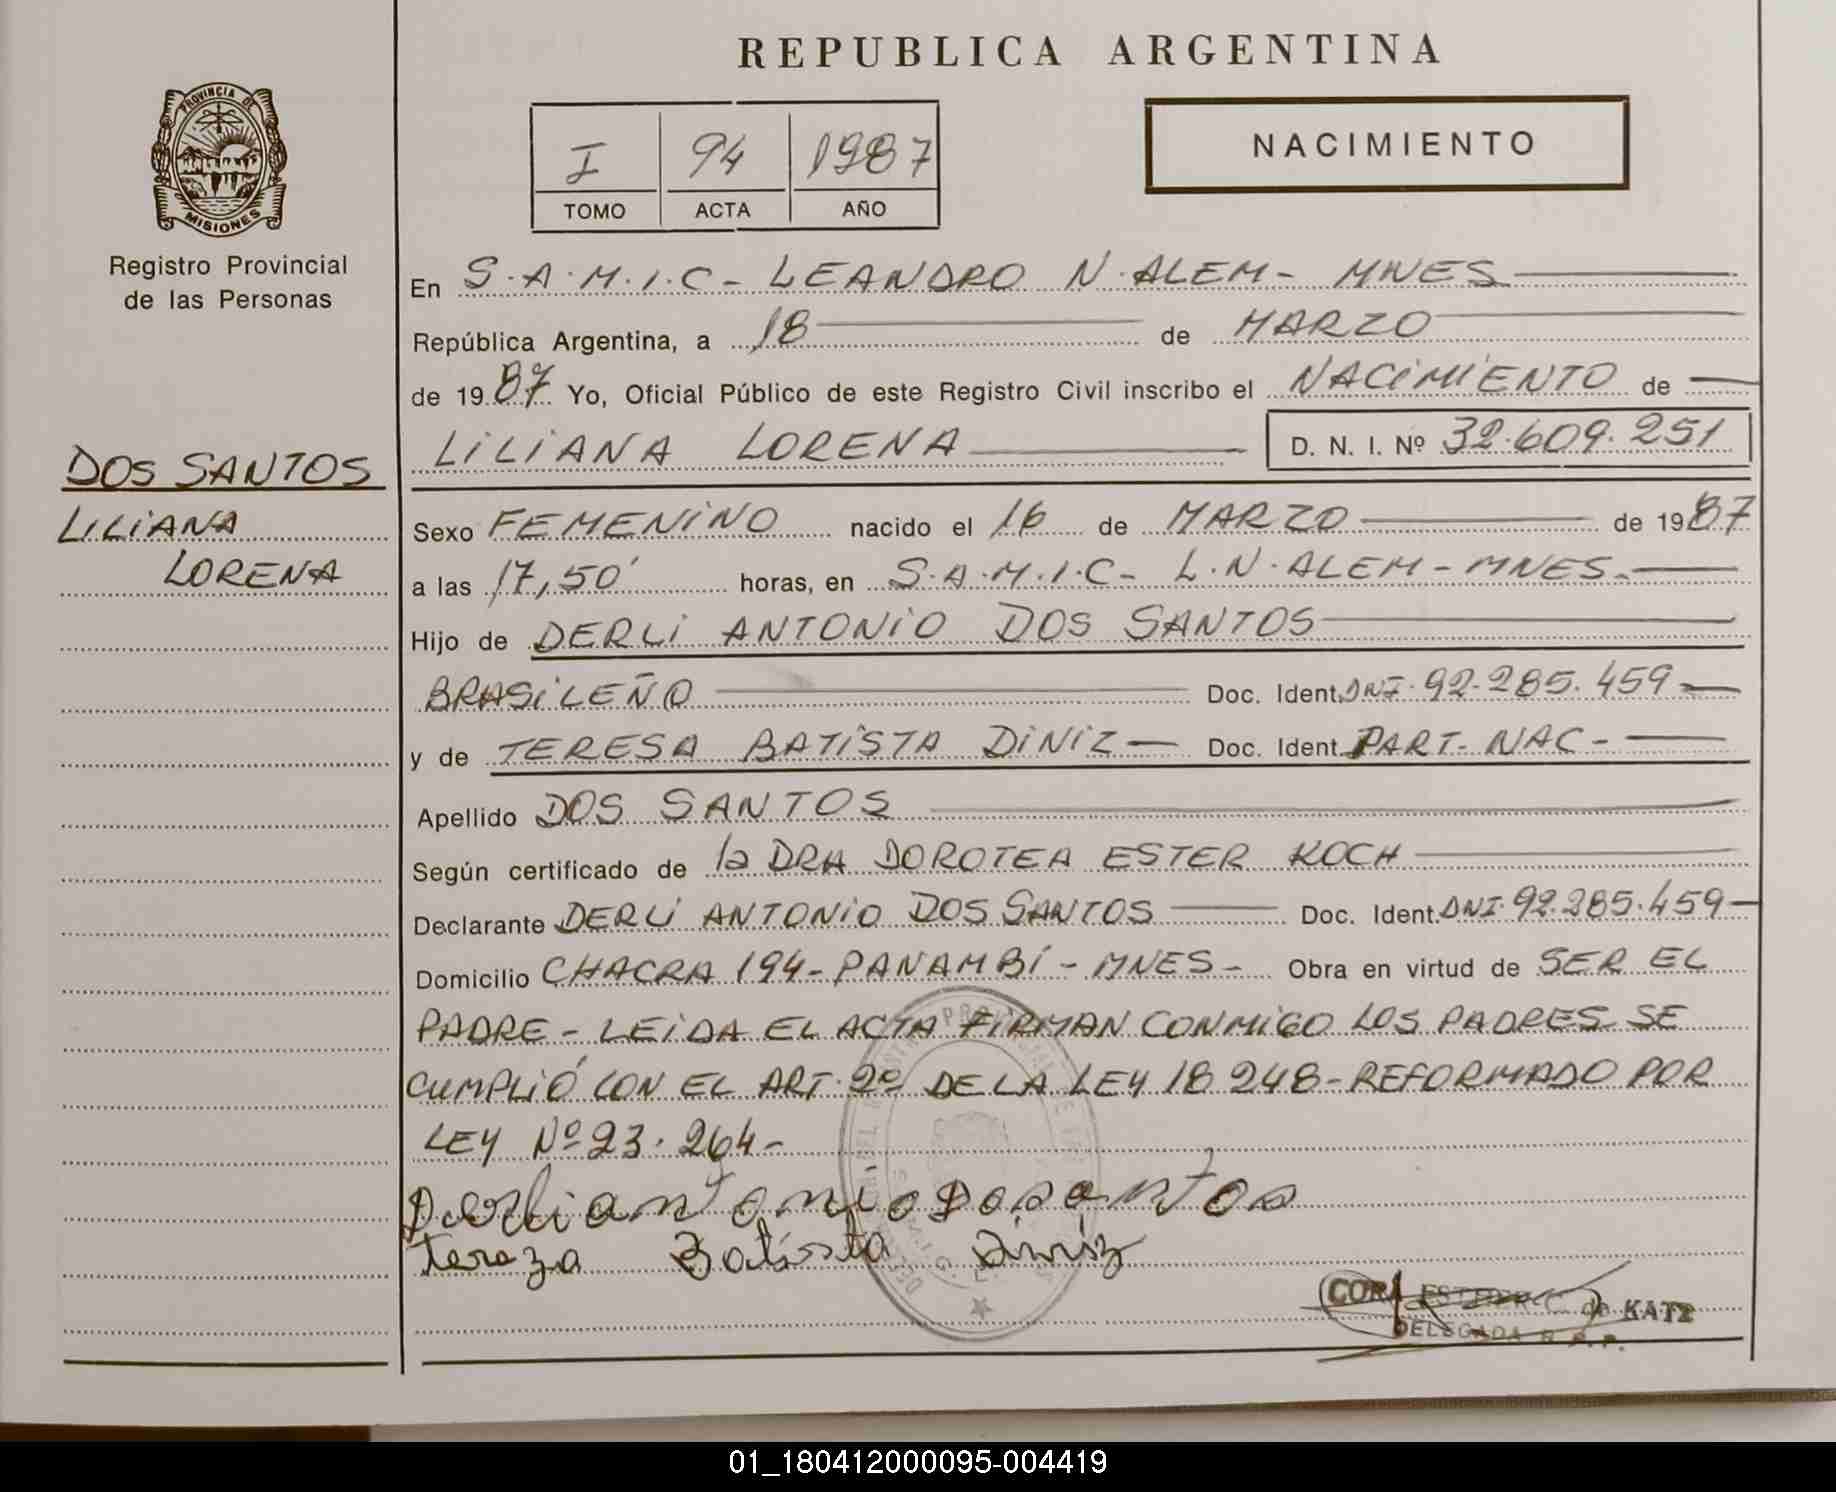 REPUBLICA ARGENTINA
PROVINCIA DE
MISIONES
Registro Provincial
de las Personas
I 94 1987
TOMO ACTA AÑO
NACIMIENTO
En S.A.M.I.C - LEANDRO N. ALEM - MNES
República Argentina, a 18 de MARZO
de 19 87 Yo, Oficial Público de este Registro Civil inscribo el NACIMIENTO de
LILIANA LORENA D. N. I. Nº 32.609.251
DOS SANTOS
LILIANA
LORENA
Sexo FEMENINO nacido el 16 de MARZO de 19 87
a las 17,50' horas, en S.A.M.I.C - L.N. ALEM - MNES.
Hijo de DERLI ANTONIO DOS SANTOS
BRASILEÑO Doc. Ident. DNI. 92.285.459
y de TERESA BATISTA DINIZ Doc. Ident. PART - NAC -
Apellido DOS SANTOS
Según certificado de la DRA DOROTEA ESTER KOCH
Declarante DERLI ANTONIO DOS SANTOS Doc. Ident. DNI. 92.285.459
Domicilio CHACRA 194 - PANAMBÍ - MNES - Obra en virtud de SER EL
PADRE - LEIDA EL ACTA FIRMAN CONMIGO LOS PADRES SE
CUMPLIÓ CON EL ART. 2º DE LA LEY 18 248 - REFORMADO POR
LEY Nº 23.264 -
Derli antonio dosantos
tereza Batista Diniz
CORA de KATZ
DELEGADA R. P. P.
01_180412000095-004419